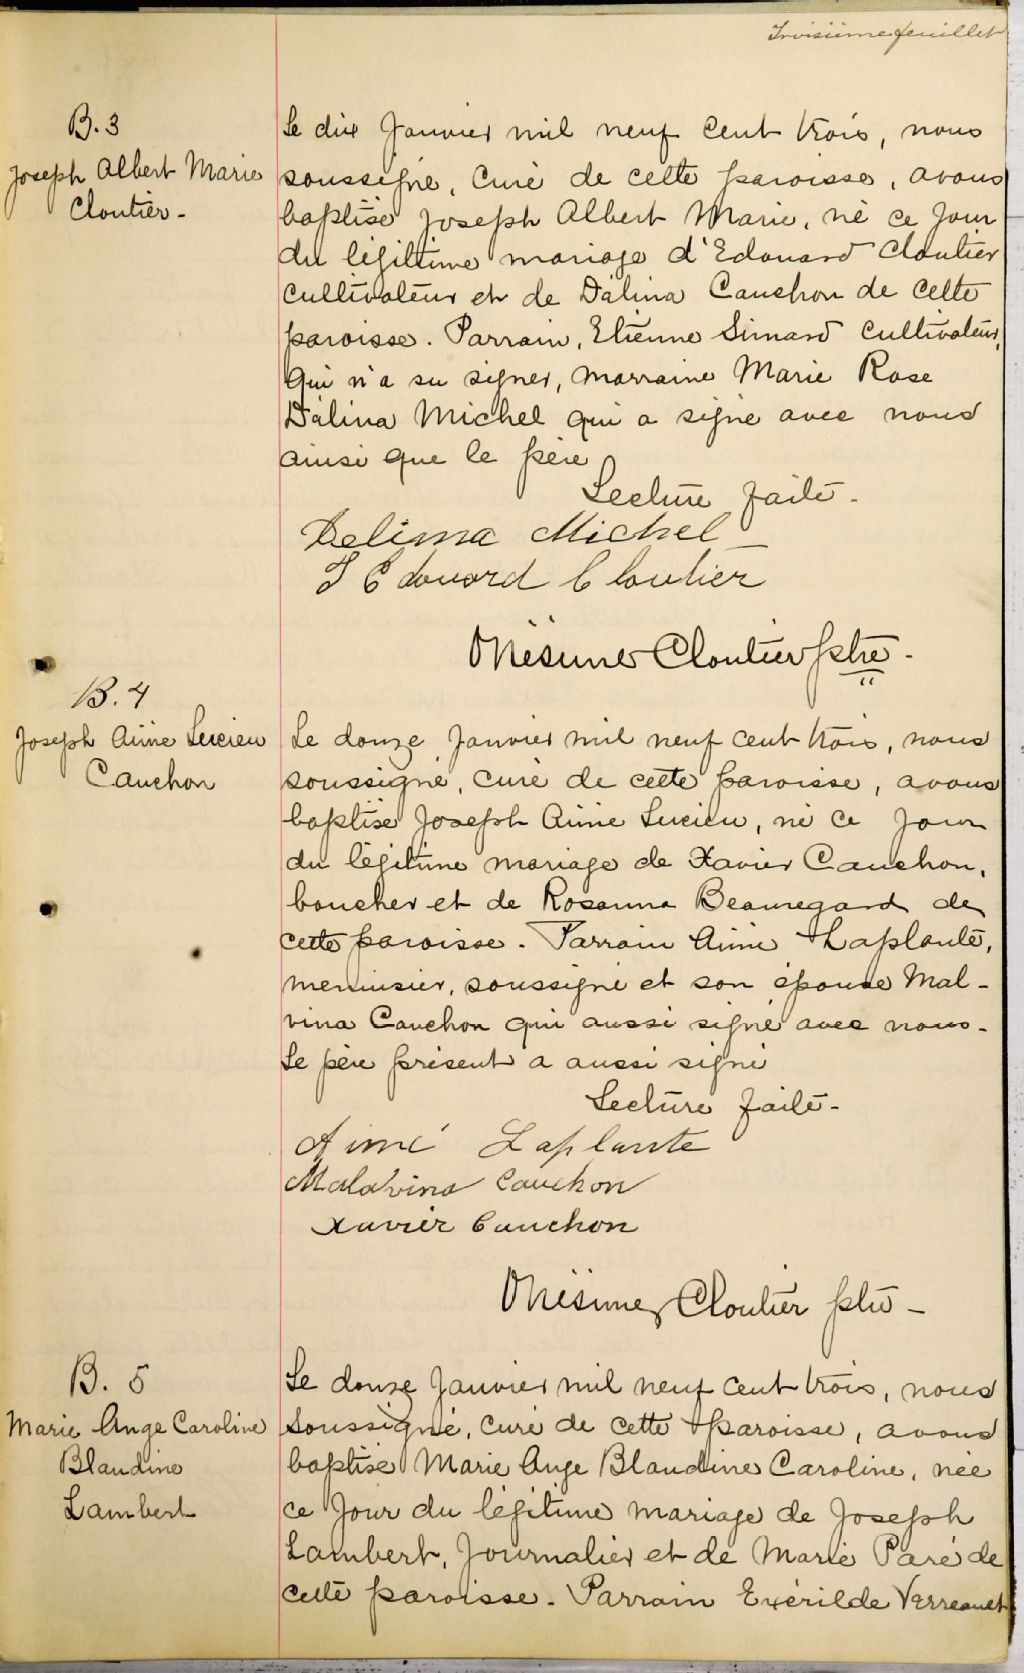 Troisième feuillet
B. 3
Joseph Albert Marie
Cloutier -
Le dix Janvier mil neuf cent trois, nous
soussigné, curé de cette paroisse, avons
baptisé Joseph Albert Marie, né ce jour
du légitime mariage d'Edouard Cloutier
cultivateur et de Dálina Cauchon de cette
paroisse. Parrain, Etienne Simard cultivateur,
qui n'a su signer, marraine Marie Rose
Dálina Michel qui a signé avec nous
ainsi que le père
Lecture faite -
Delima Michel
J Edouard Cloutier
Onésime Cloutier ptre -
B. 4
Joseph Aimé Lucien
Cauchon
Le douze Janvier mil neuf cent trois, nous
soussigné, curé de cette paroisse, avons
baptisé Joseph Aimé Lucien, né ce jour
du légitime mariage de Xavier Cauchon,
boucher et de Rosanna Beauregard de
cette paroisse. Parrain Aimé Laplante,
menuisier, soussigné et son épouse Mal-
vina Cauchon qui aussi signé avec nous -
Le père présent a aussi signé
Lecture faite -
Aimé Laplante
Malavina Cauchon
Xavier Cauchon
Onésime Cloutier ptre -
B. 5
Marie Ange Caroline
Blandine
Lambert
Le douze Janvier mil neuf cent trois, nous
soussigné, curé de cette paroisse, avons
baptisé Marie Ange Blandine Caroline, née
ce jour du légitime mariage de Joseph
Lambert, Journalier et de Marie Paré de
cette paroisse. Parrain Exérilde Verreault